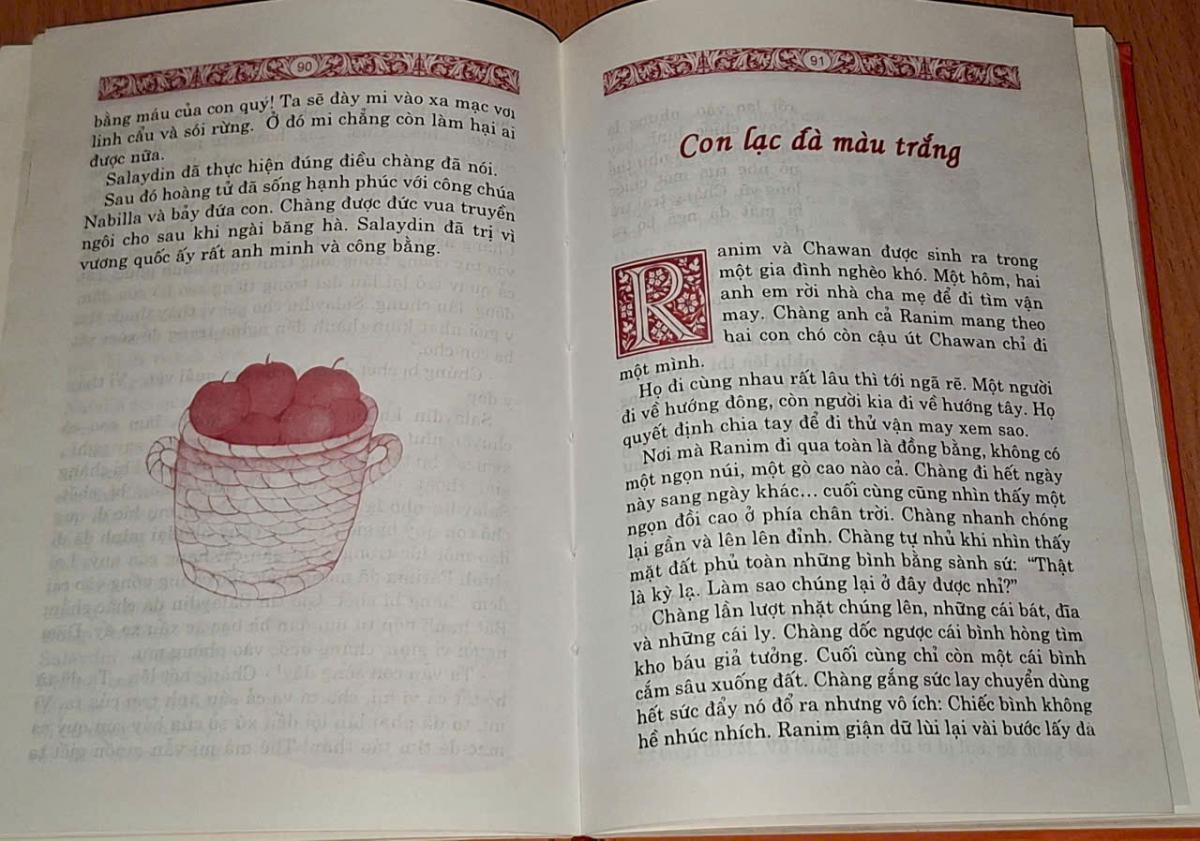 90
bằng máu của con quý! Ta sẽ đày mi vào xa mạc với
linh cẩu và sói rừng. Ở đó mi chẳng còn làm hại ai
được nữa.
Salaydin đã thực hiện đúng điều chàng đã nói.
Sau đó hoàng tử đã sống hạnh phúc với công chúa
Nabilla và bảy đứa con. Chàng được đức vua truyền
ngôi cho sau khi ngài băng hà. Salaydin đã trị vì
vương quốc ấy rất anh minh và công bằng.
91
Con lạc đà màu trắng
Ranim và Chawan được sinh ra trong
một gia đình nghèo khó. Một hôm, hai
anh em rời nhà cha mẹ để đi tìm vận
may. Chàng anh cả Ranim mang theo
hai con chó còn cậu út Chawan chỉ đi
một mình.
Họ đi cùng nhau rất lâu thì tới ngã rẽ. Một người
đi về hướng đông, còn người kia đi về hướng tây. Họ
quyết định chia tay để đi thử vận may xem sao.
Nơi mà Ranim đi qua toàn là đồng bằng, không có
một ngọn núi, một gò cao nào cả. Chàng đi hết ngày
này sang ngày khác... cuối cùng cũng nhìn thấy một
ngọn đồi cao ở phía chân trời. Chàng nhanh chóng
lại gần và lên lên đỉnh. Chàng tự nhủ khi nhìn thấy
mặt đất phủ toàn những bình bằng sành sứ: “Thật
là kỳ lạ. Làm sao chúng lại ở đây được nhỉ?”
Chàng lần lượt nhặt chúng lên, những cái bát, đĩa
và những cái ly. Chàng dốc ngược cái bình hòng tìm
kho báu giả tưởng. Cuối cùng chỉ còn một cái bình
cắm sâu xuống đất. Chàng gắng sức lay chuyển dùng
hết sức đẩy nó đổ ra nhưng vô ích: Chiếc bình không
hề nhúc nhích. Ranim giận dữ lùi lại vài bước lấy đà